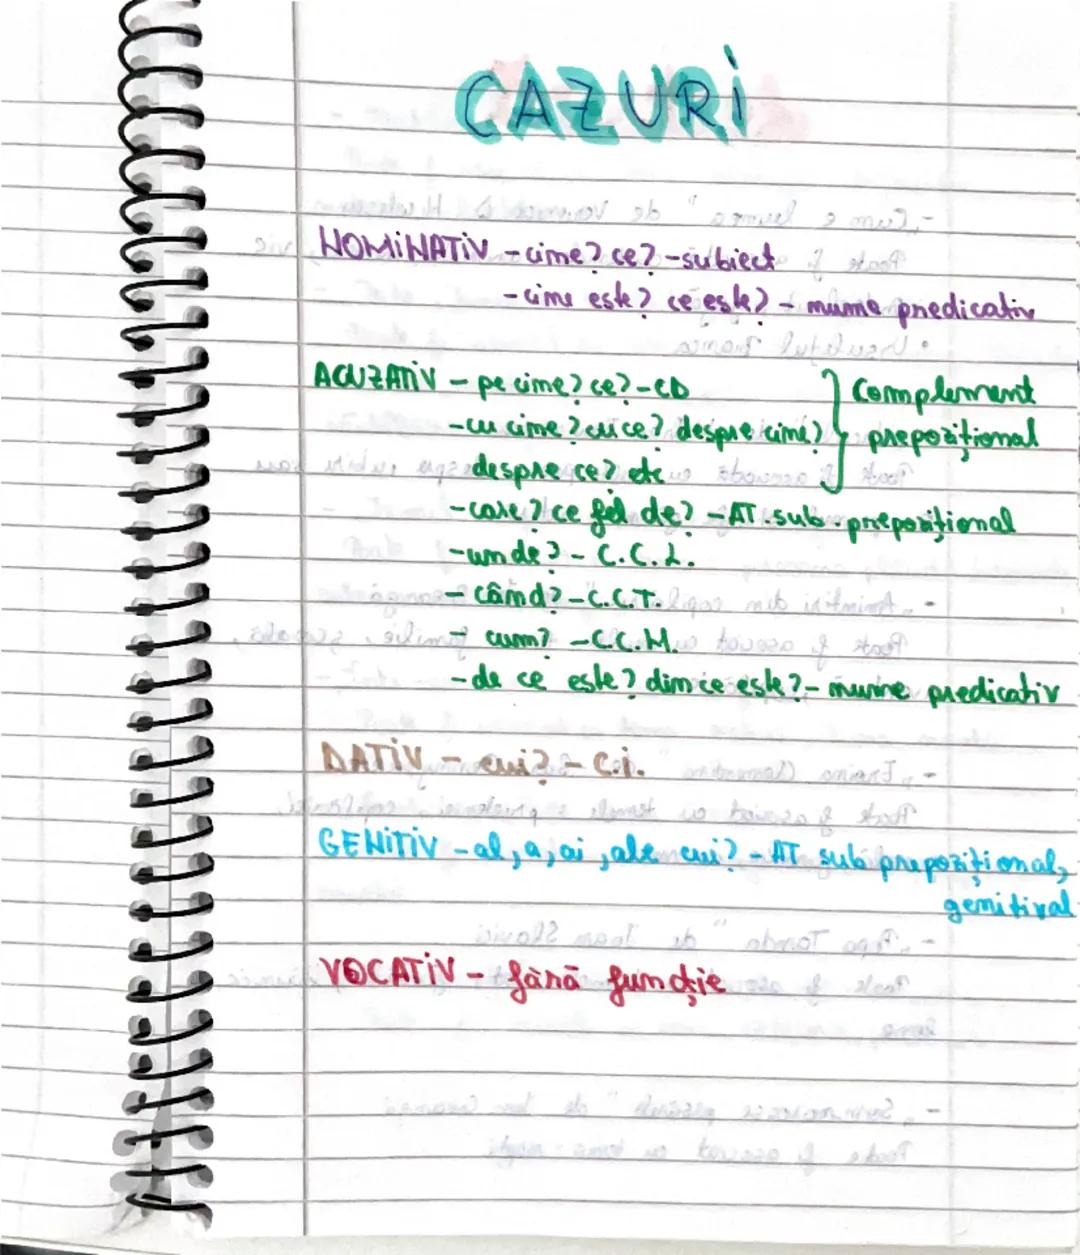 CAZURI
NOMINATIV - cine? ce? - subiect
- cine este? ce este? - nume predicativ
ACUZATIV - pe cine? ce? - CD
- cu cine? cu ce? despre cine?
despre ce? etc
} Complement
prepozițional
- care? ce fel de? - AT. sub. prepozițional
- unde? - C.C.L.
- când? - C.C.T.
- cum? - C.C.M.
- de ce este? din ce este? - nume predicativ
DATIV - cui? - C.i.
GENITIV - al, a, ai, ale cui? - AT sub prepozițional,
genitival
VOCATIV - fără funcție